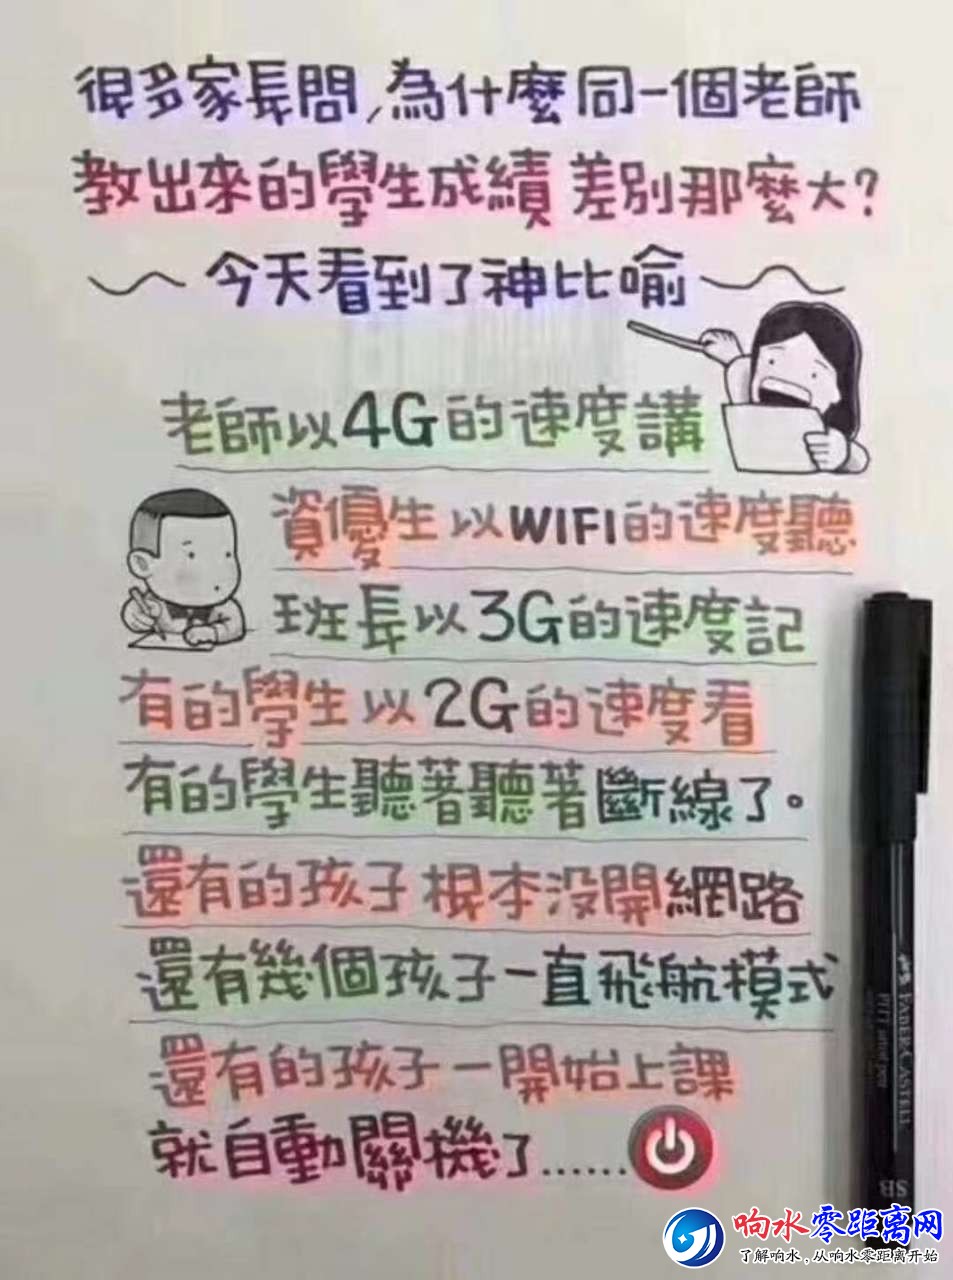 很多家長問,為什麼同一個老師
教出來的學生成績差別那麼大?
今天看到了神比喻
老師以4G的速度講
資優生以WIFI的速度聽
班長以3G的速度記
有的學生以2G的速度看
有的學生聽著聽著斷線了。
還有的孩子根本沒開網路
還有幾個孩子一直飛航模式
還有的孩子一開始上課
就自動關機了......
FABER-CASTELL
PITT artist pen
SB
响水零距离网
了解响水,从响水零距离开始